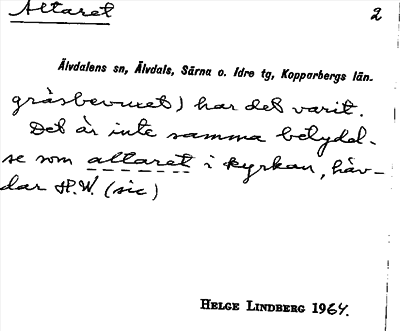 Altaret 2
Älvdalens sn, Älvdals, Särna o. Idre tg, Kopparbergs län.
gräsbevuxet) har det varit.
Det är inte samma betydel-
se som altaret i kyrkan, häv-
dar H.W. (sic)
HELGE LINDBERG 1964.